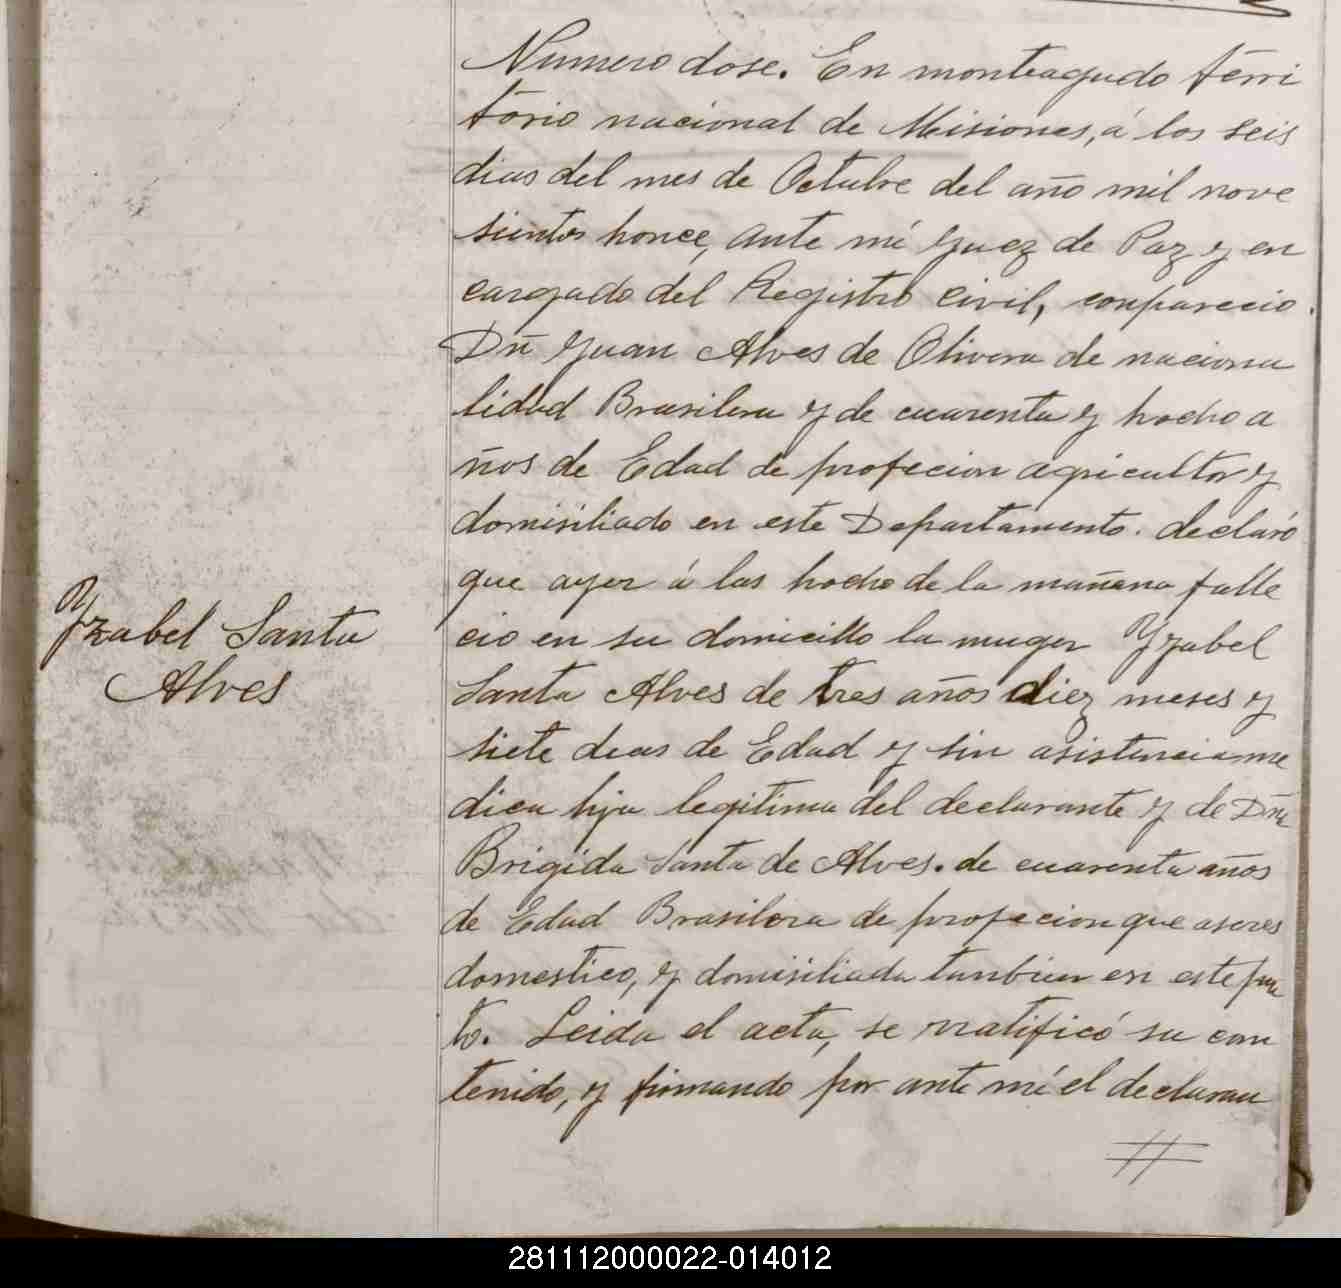 Numero dose. En monteagudo terri
torio nacional de Misiones, á los seis
dias del mes de Octubre del año mil nove
sientos honce, ante mi Yuez de Paz y en
cargado del Registro civil, conparecio.
Dñ Yuan Alves de Olivera de naciona
lidad Brasilera y de cuarenta y hocho a
ños de Edad de profecion agricultor y
domisiliado en este Departamento. declaró
que ayer á las hocho de la mañana falle
cio en su domicilio la muger Yzabel
Santa Alves de tres años diez meses y
siete dias de Edad y sin asistencia me
dica hija legitima del declarante y de Dña
Brigida Santa de Alves. de cuarenta años
de Edad Brasilera de profecion que aseres
domestico, y domisiliada tanbien en este pun
to. Leida el acta, se rratificó su con
tenido, y firmando por ante mí el declaran
Yzabel Santa
Alves
281112000022-014012